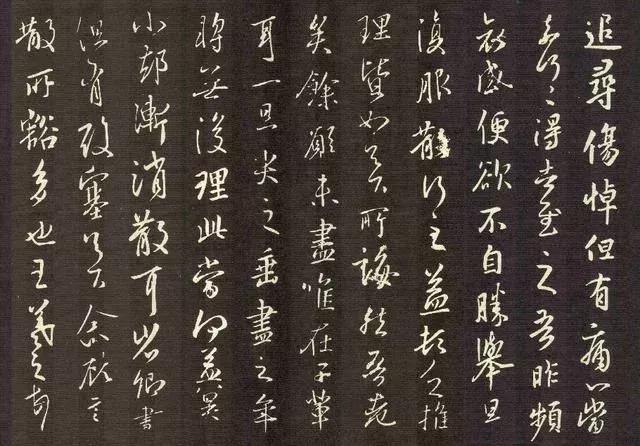 追尋傷悼但有痛心當
奈何奈何得告慰之吾昨頻
哀感便欲不自勝舉旦
復服散行之益頓乏推
理皆如足下所誨然吾老
矣餘願未盡惟在子輩
耳一旦哭之垂盡之年
將無復理此當何益冀
小卻漸消散耳省卿書
但有酸塞足下念故言
散所豁多也王羲之頓首